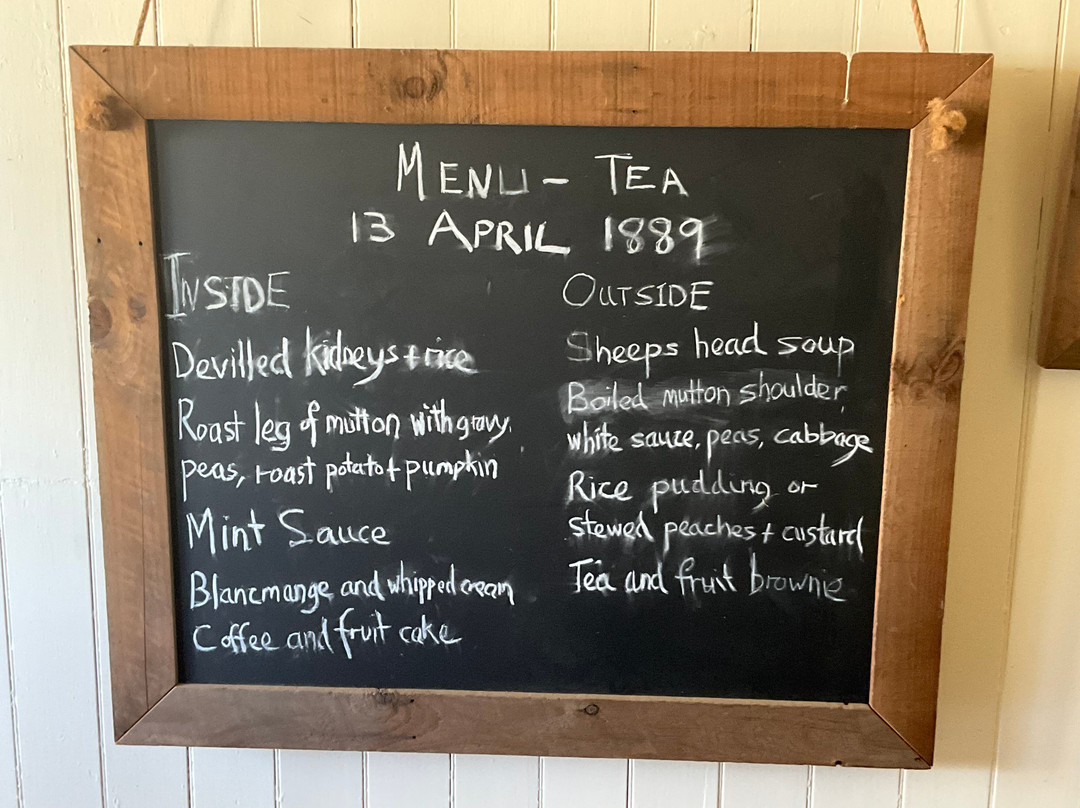 MENU - TEA
13 APRIL 1889
INSIDE
Devilled kidneys + rice
Roast leg of mutton with gravy,
peas, roast potato + pumpkin
Mint Sauce
Blancmange and whipped cream
Coffee and fruit cake
OUTSIDE
Sheeps head soup
Boiled mutton shoulder,
white sauce, peas, cabbage
Rice pudding or
stewed peaches + custard
Tea and fruit brownie